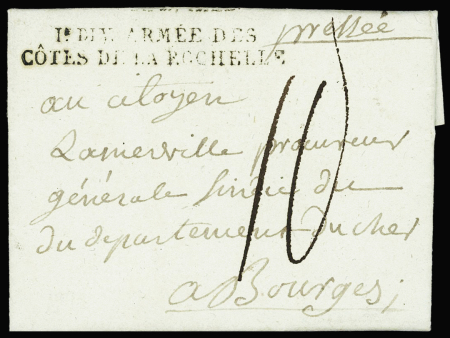 Iʳᵉ DIV. ARMÉE DES
CÔTES DE LA ROCHELLE
pressée
10
au citoyen
Lamerville procureur
générale sindic du
du departement du cher
a Bourges,